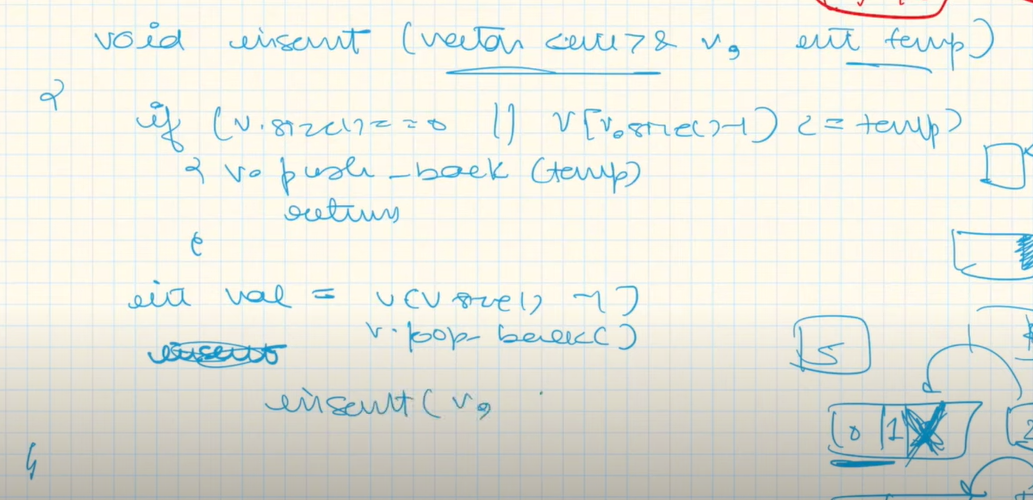 void insert (vector <int>& v, int temp)
{
if (v.size() == 0 || v[v.size()-1] <= temp)
{ v.push_back (temp)
return
}
int val = v[v.size() -1]
v.pop_back()
insert
insert (v,
}
5
0 | 1
2